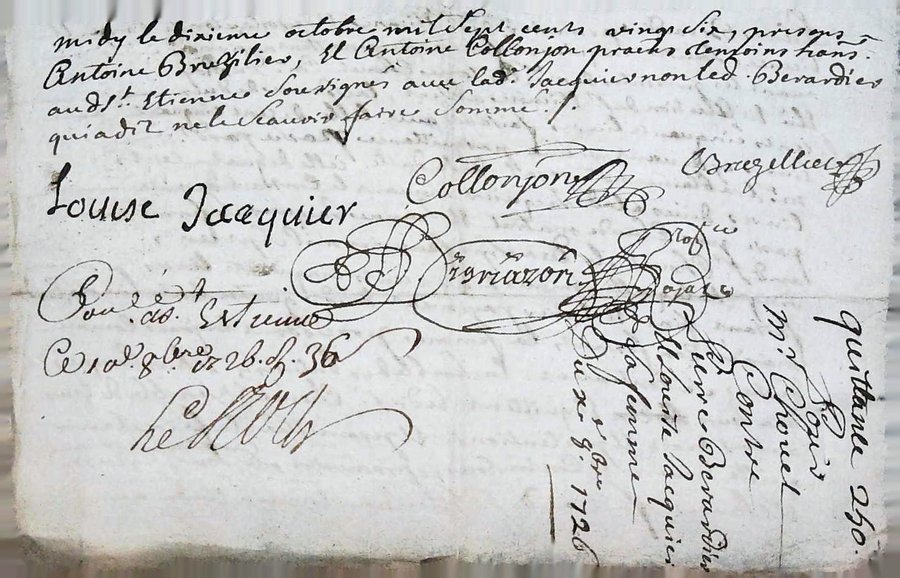 midy le dixieme octobre mil sept cents vingt six, presens
Antoine Bruzilier, Et Antoine Collonjon praciˢ temoins
audˢᵗ. Etienne soussignés avec lad. Jacquier non led. Berardier
qui a dit ne le scavoir faire somme
Collonjon
Bruzellier
Louise Jacquier
Conᵉ aˢᵗ Estienne
Ce 10ᵉ. 8bre 1726.
quittance 250.
Pour
Mr Chovel
Contre
Pierre Berardier
Et Louise Jacquier
sa femme
Du xe 8bre 1726